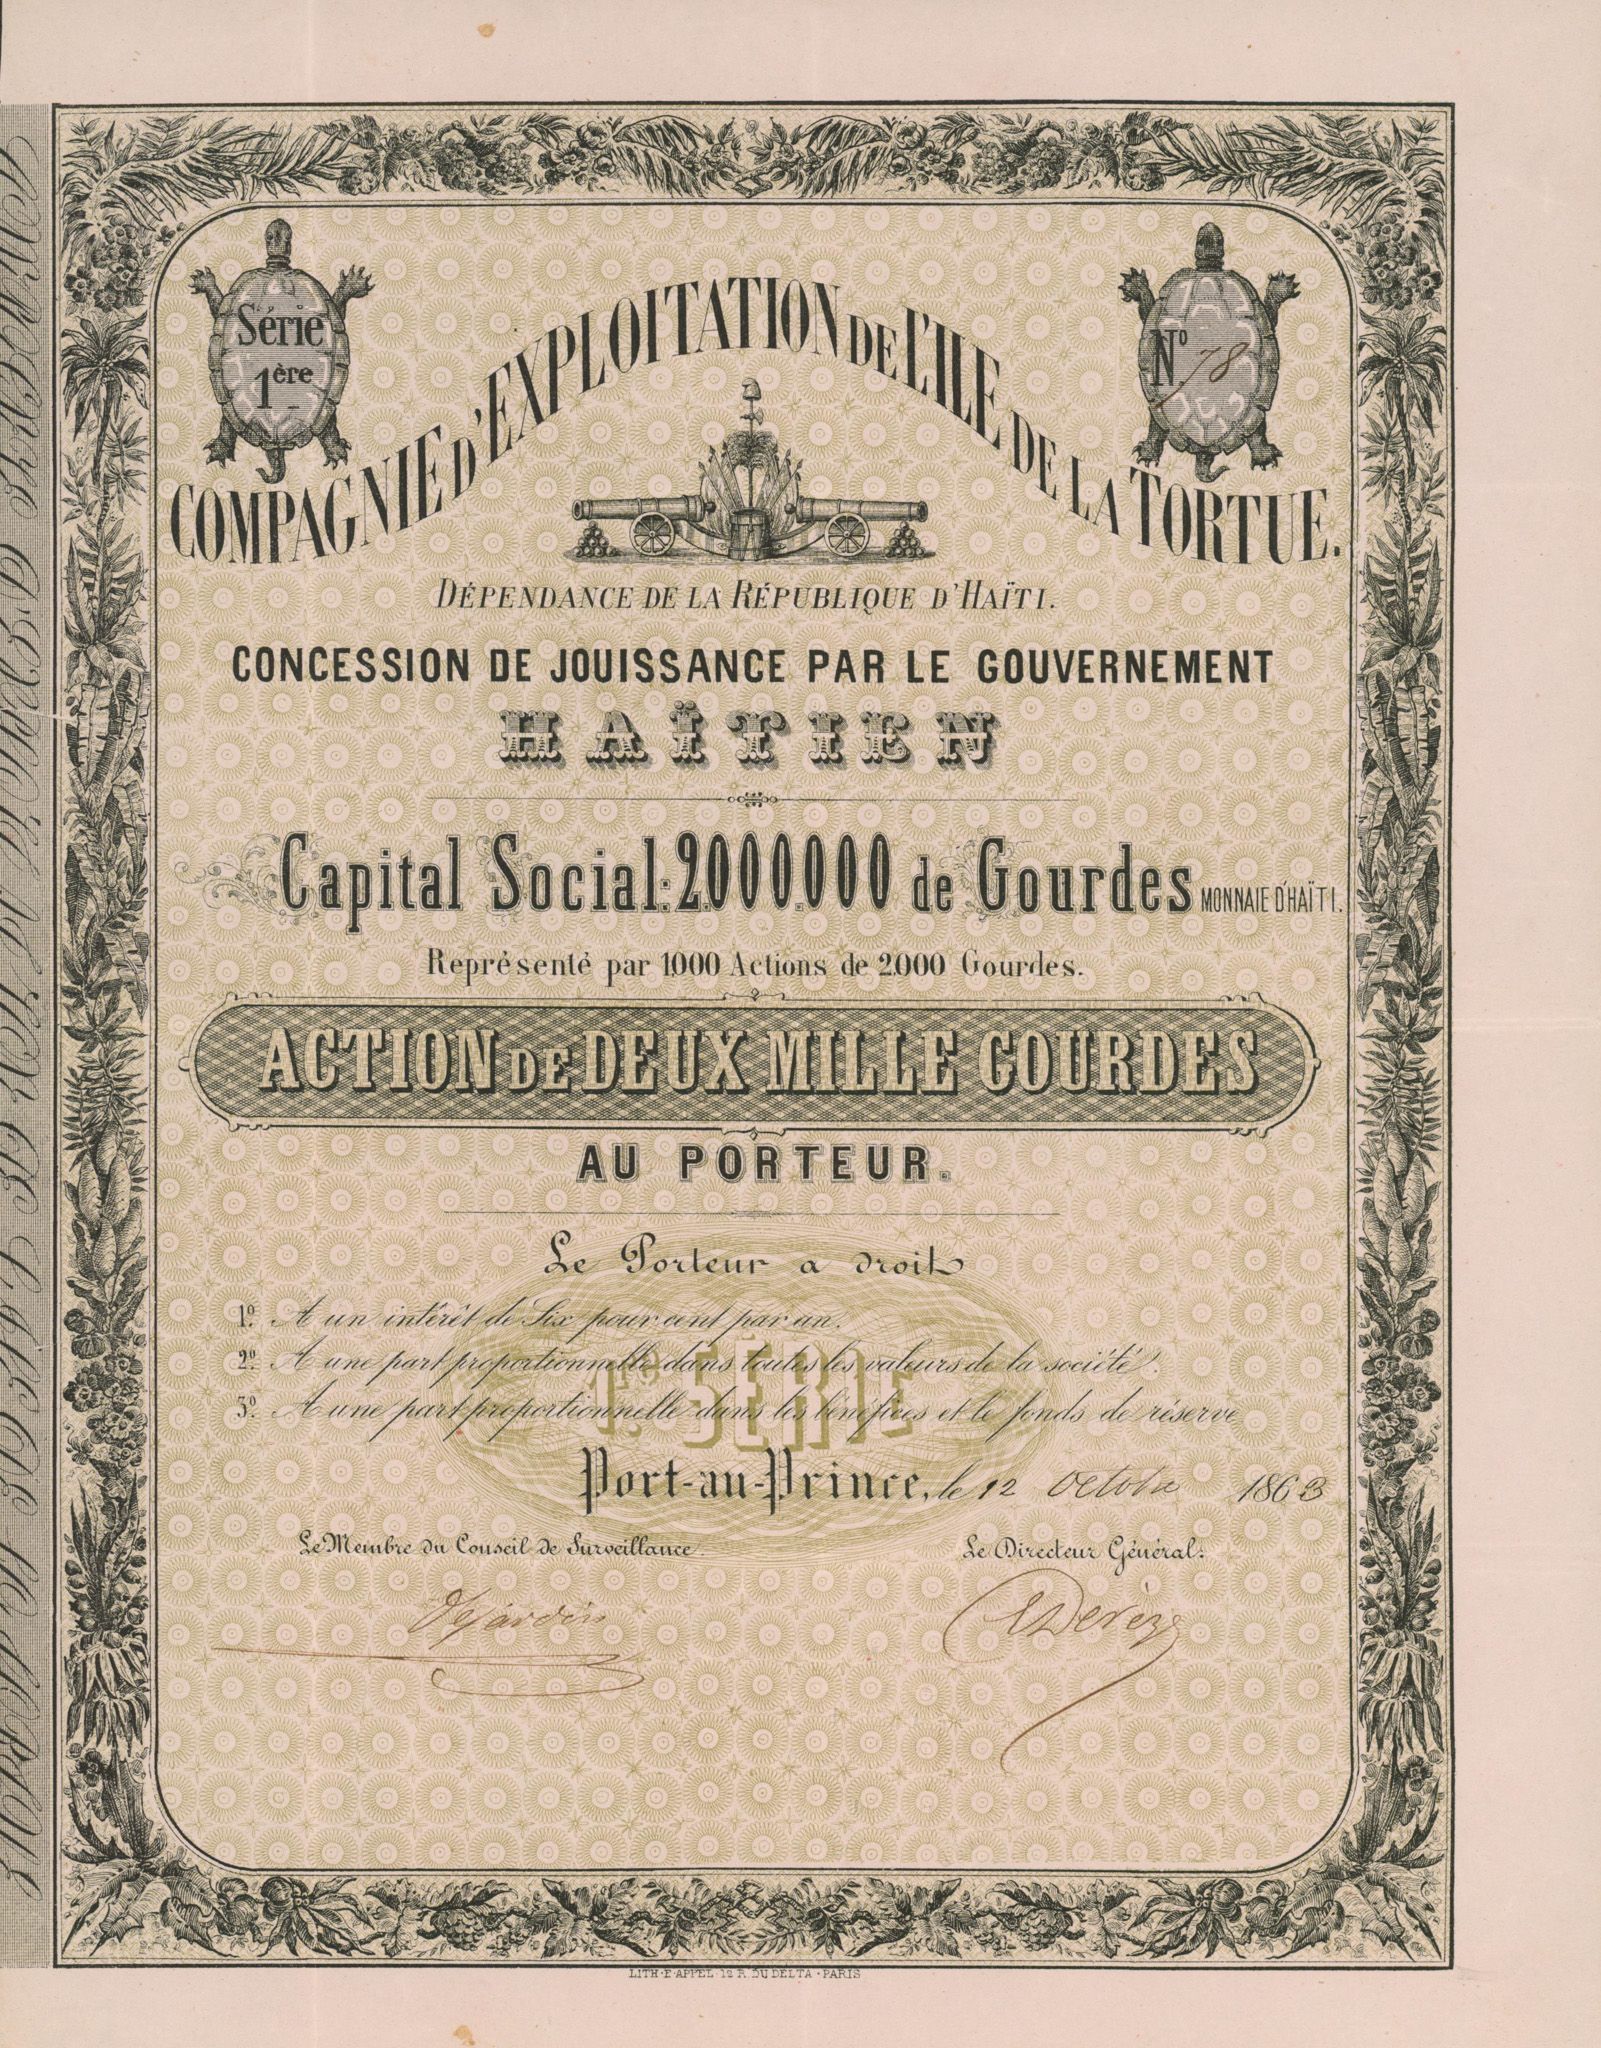 Série
1ère
No 78
COMPAGNIE D'EXPLOITATION DE L'ILE DE LA TORTUE.
DÉPENDANCE DE LA RÉPUBLIQUE D'HAÏTI.
CONCESSION DE JOUISSANCE PAR LE GOUVERNEMENT
HAÏTIEN
Capital Social: 2.000.000 de Gourdes MONNAIE D'HAÏTI.
Représenté par 1.000 Actions de 2.000 Gourdes.
ACTION DE DEUX MILLE GOURDES
AU PORTEUR.
Le Porteur a droit
1º. A un intérêt de Six pour cent par an.
2º. A une part proportionnelle dans toutes les valeurs de la société.
3º. A une part proportionnelle dans les bénéfices et le fonds de réserve
1re SÉRIE
Port-au-Prince, le 12 Octobre 1863
Le Membre du Conseil de Surveillance.
Le Directeur Général:
Dejardin
LITH. E. APPEL. 12 R. DU DELTA. PARIS